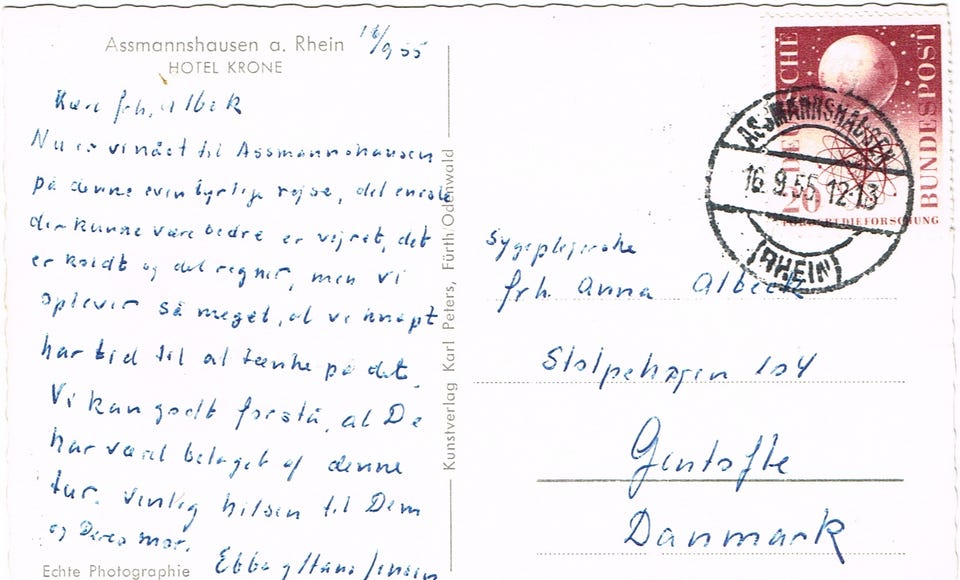 Assmannshausen a. Rhein
HOTEL KRONE
16/9 55
Kære frk. Albeck
Nu er vi nået til Assmannshausen
på denne eventyrlige rejse, det eneste
der kunne være bedre er vejret, det
er koldt og det regner, men vi
oplever så meget, at vi knapt
har tid til at tænke på det.
Vi kan godt forstå, at De
har været betaget af denne
tur. Venlig hilsen til Dem
og Deres mor.
Ebba og Hans Jensen
Echte Photographie
Kunstverlag Karl Peters, Fürth/Odenwald
DEUTSCHE BUNDESPOST
20
FORSCHUNG
ASSMANNSHAUSEN
16.9.55.12-13
(RHEIN)
Sygeplejerske
frk. Anna Albeck
Stolpehøjen 104
Gentofte
Danmark